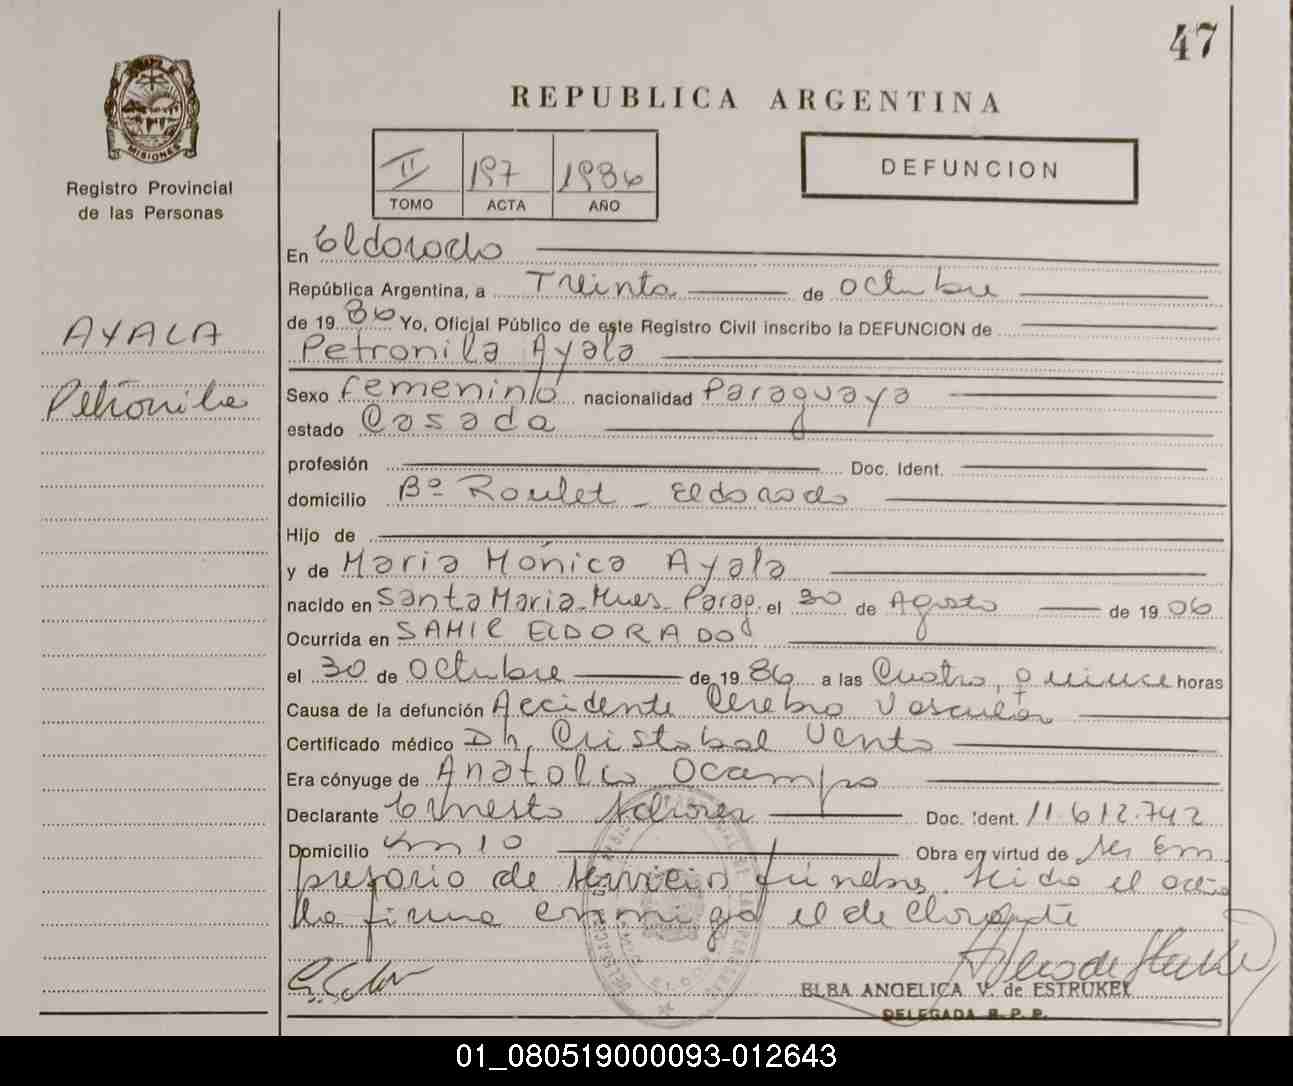 47
REPUBLICA ARGENTINA
MISIONES
Registro Provincial
de las Personas
II 197 1986
TOMO ACTA AÑO
DEFUNCION
AYALA
Petronila
En Eldorado
República Argentina, a Treinta de octubre
de 1986 Yo, Oficial Público de este Registro Civil inscribo la DEFUNCION de
Petronila Ayala
Sexo femenino nacionalidad Paraguaya
estado Casada
profesión Doc. Ident.
domicilio Bº Roulet - Eldorado
Hijo de
y de Maria Mónica Ayala
nacido en Santa Maria - Parag. el 30 de Agosto de 1906
Ocurrida en SAMIC ELDORADO
el 30 de Octubre de 1986 a las Cuatro, quince horas
Causa de la defunción Accidente Cerebro Vascular
Certificado médico Dr. Cristobal Vento
Era cónyuge de Anatolio Ocampo
Declarante Ernesto Doc. Ident. 11.612.742
Domicilio Km 10 Obra en virtud de ser Em
presario de servicios fúnebres. Leida el acta
la firma conmigo el declarante
ELBA ANGELICA V. de ESTRUKEL
DELEGADA R. P. P.
01_080519000093-012643